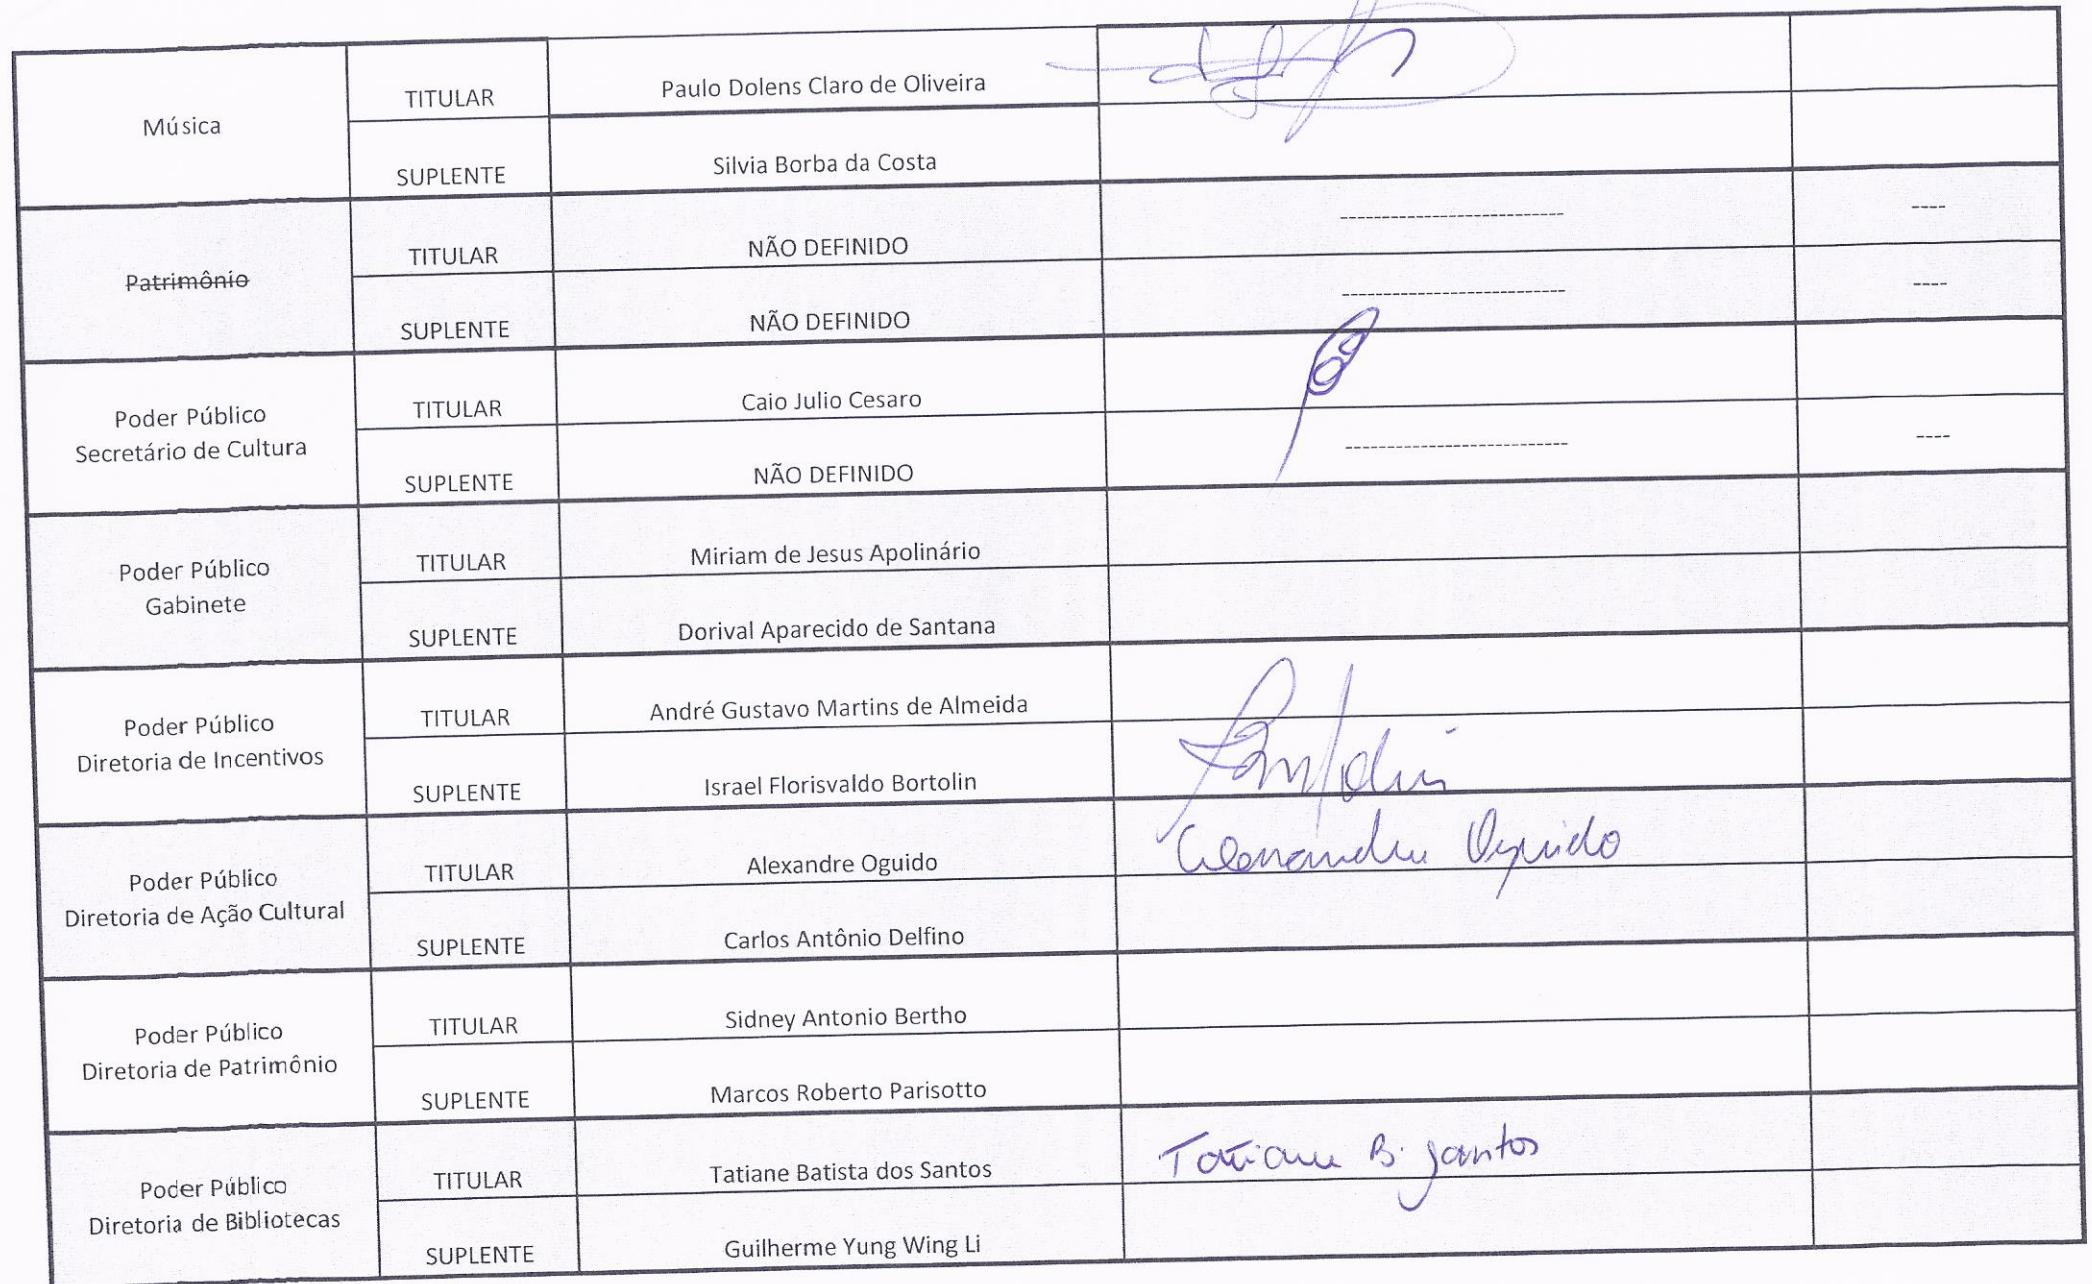 Música
TITULAR
Paulo Dolens Claro de Oliveira
SUPLENTE
Silvia Borba da Costa
Patrimônio
TITULAR
NÃO DEFINIDO
---------------------------
----
SUPLENTE
NÃO DEFINIDO
---------------------------
----
Poder Público
Secretário de Cultura
TITULAR
Caio Julio Cesaro
SUPLENTE
NÃO DEFINIDO
---------------------------
----
Poder Público
Gabinete
TITULAR
Miriam de Jesus Apolinário
SUPLENTE
Dorival Aparecido de Santana
Poder Público
Diretoria de Incentivos
TITULAR
André Gustavo Martins de Almeida
SUPLENTE
Israel Florisvaldo Bortolin
Poder Público
Diretoria de Ação Cultural
TITULAR
Alexandre Oguido
Alexandre Oguido
SUPLENTE
Carlos Antônio Delfino
Poder Público
Diretoria de Patrimônio
TITULAR
Sidney Antonio Bertho
SUPLENTE
Marcos Roberto Parisotto
Poder Público
Diretoria de Bibliotecas
TITULAR
Tatiane Batista dos Santos
Tatiane B. Santos
SUPLENTE
Guilherme Yung Wing Li